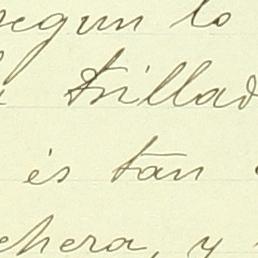 segun lo
Trillad
és tan
chera, y